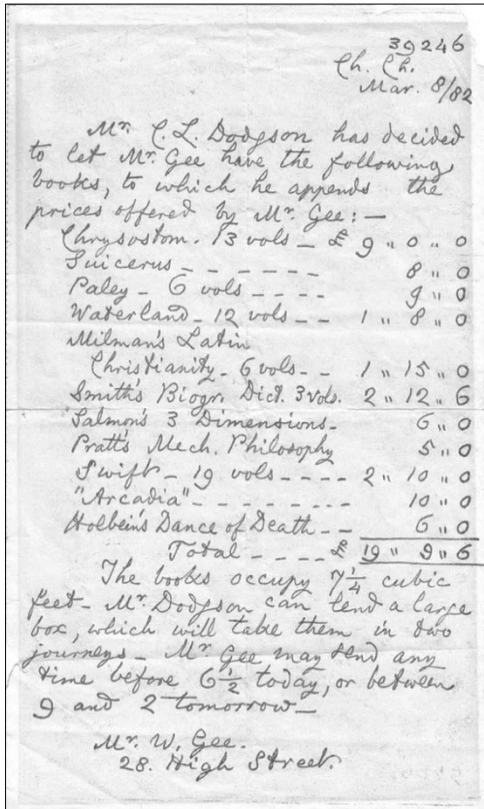 39246
Ch. Ch.
Mar. 8/82
Mr. C. L. Dodgson has decided
to let Mr. Gee have the following
books, to which he appends the
prices offered by Mr. Gee:—
Chrysostom. 13 vols — £ 9 " 0 " 0
Suicerus - - - - - - - 8 " 0
Paley - 6 vols - - - - 9 " 0
Waterland - 12 vols - - 1 " 8 " 0
Milman's Latin
Christianity - 6 vols - - 1 " 15 " 0
Smith's Biogr. Dict. 3 vols. 2 " 12 " 6
Salmon's 3 Dimensions - 6 " 0
Pratt's Mech. Philosophy 5 " 0
Swift - 19 vols - - - - 2 " 10 " 0
"Arcadia" - - - - - - - - 10 " 0
Holbein's Dance of Death - - 6 " 0
Total - - - - £ 19 " 9 " 6
The books occupy 7 1/4 cubic
feet - Mr. Dodgson can lend a large
box, which will take them in two
journeys - Mr. Gee may send any
time before 6 1/2 today, or between
9 and 2 tomorrow —
Mr. W. Gee.
28. High Street.